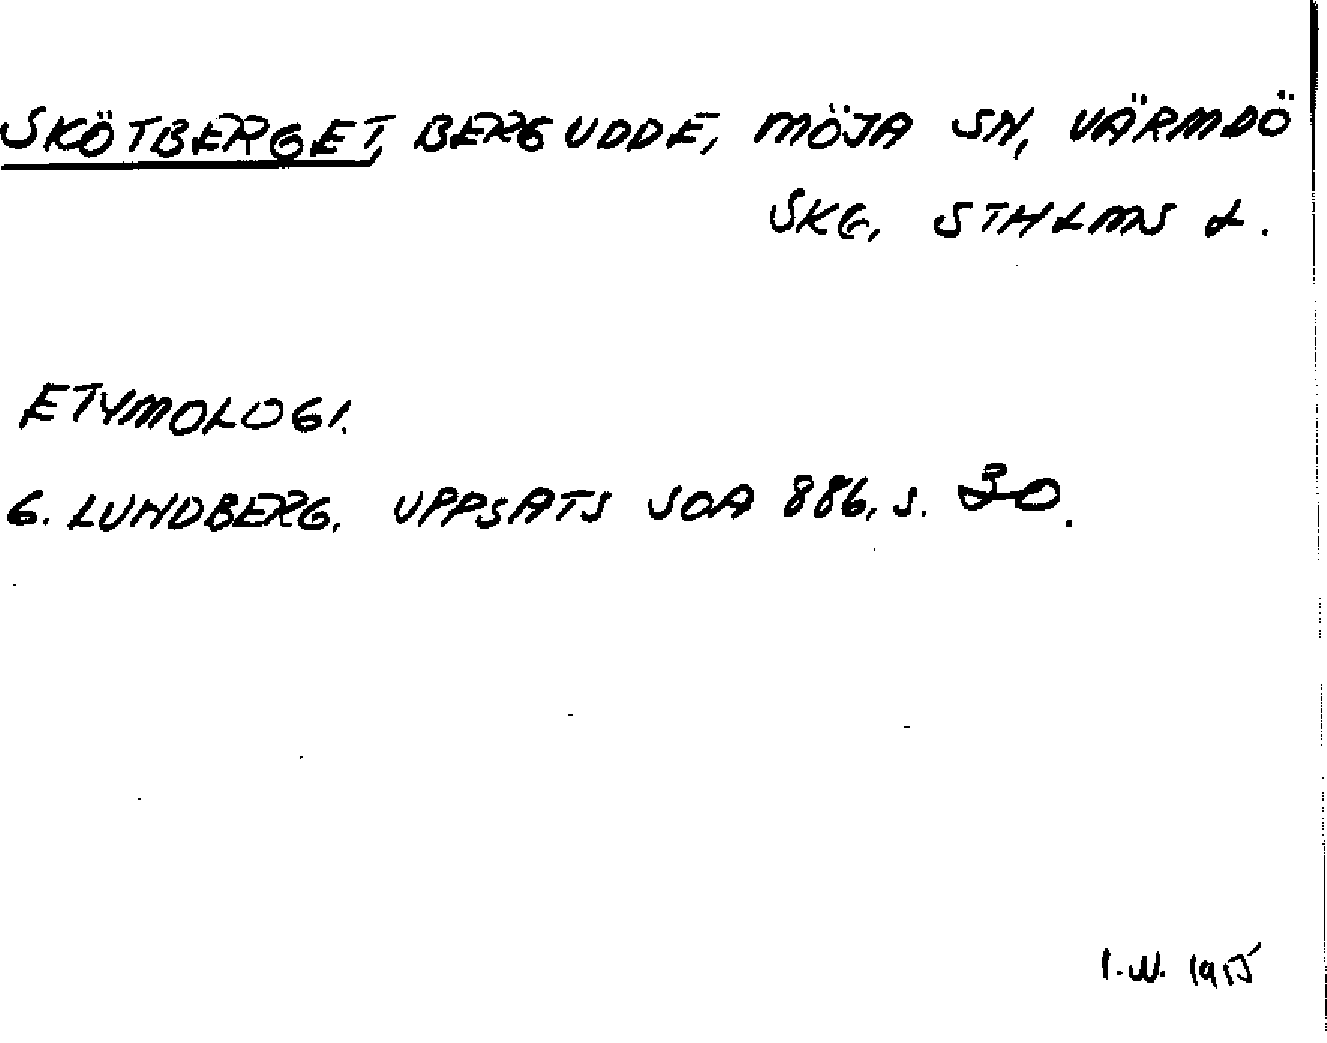 SKÖTBERGET, BERGUDDE, MÖJA SN, VÄRMDÖ
SKG, STHLMS L.
ETYMOLOGI.
G. LUNDBERG. UPPSATS SOA 886, S. 30.
I.W.